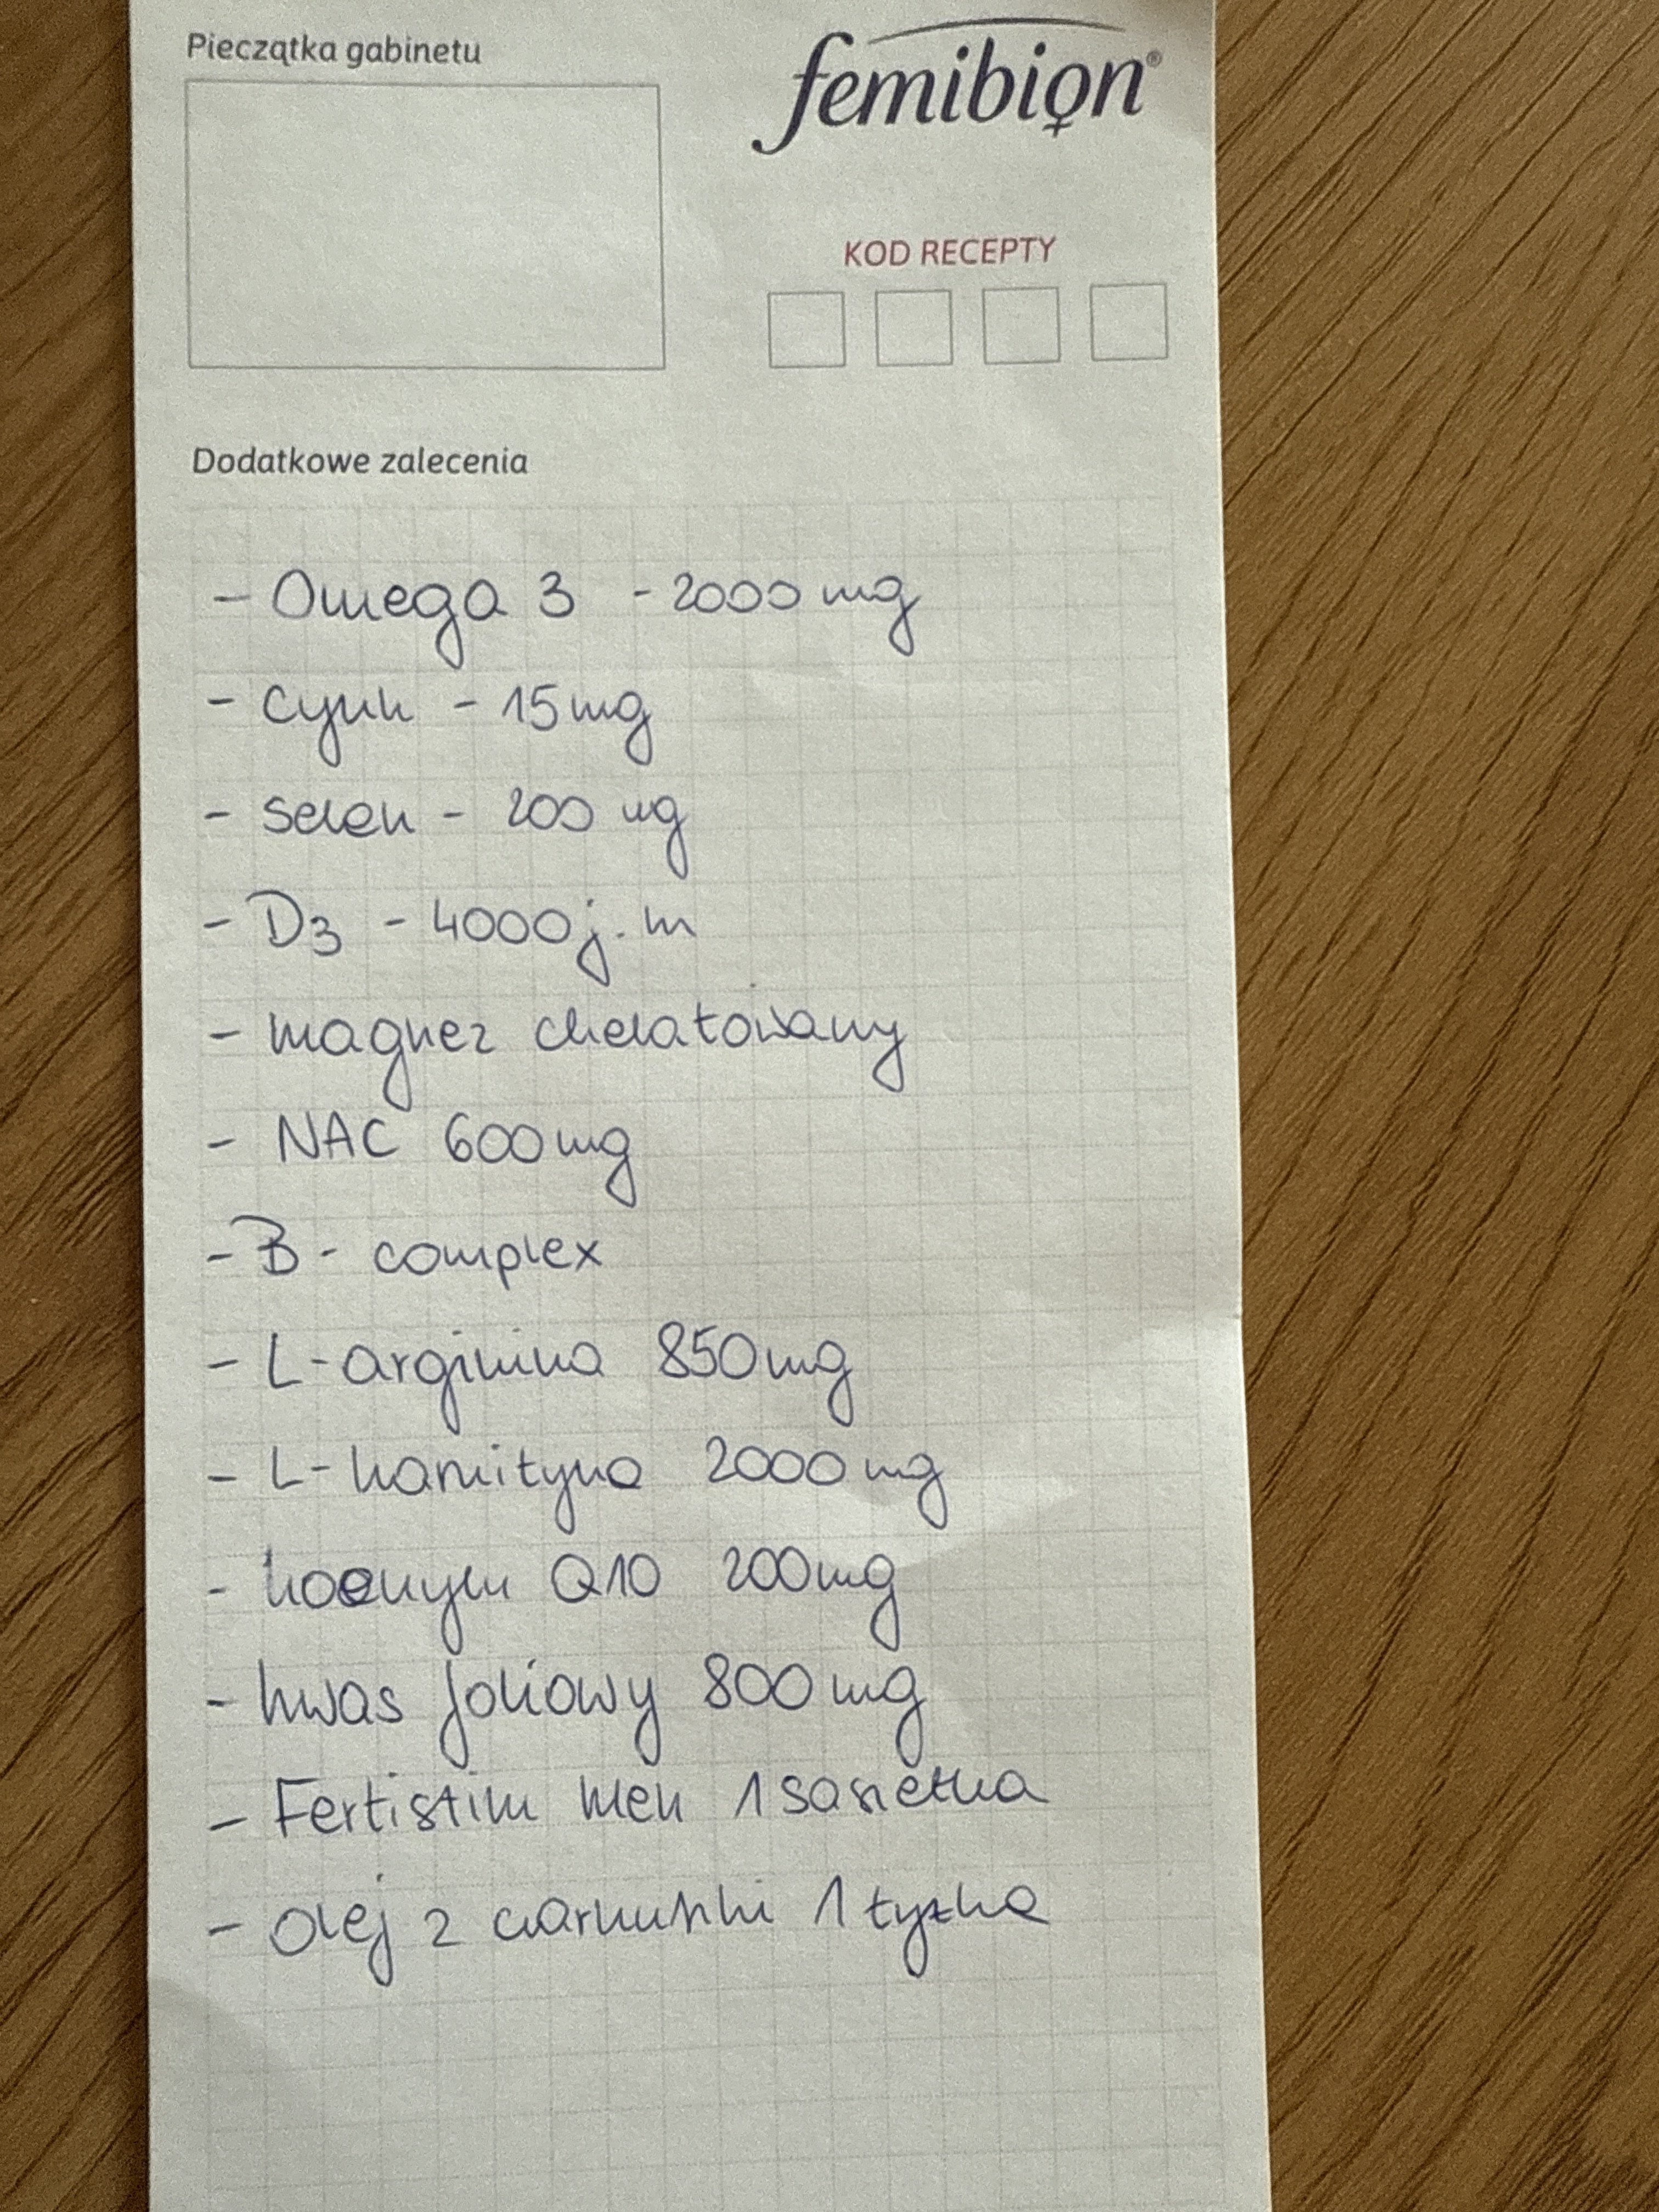 Pieczątka gabinetu
femibion®
KOD RECEPTY
Dodatkowe zalecenia
- Omega 3 - 2000 mg
- cynk - 15 mg
- selen - 200 ug
- D3 - 4000 j.m
- magnez chelatowany
- NAC 600 mg
- B - complex
- L-arginina 850 mg
- L-karnityna 2000 mg
- koenzym Q10 200 mg
- kwas foliowy 800 mg
- Fertistim Men 1 saszetka
- Olej z czarnuszki 1 łyżka